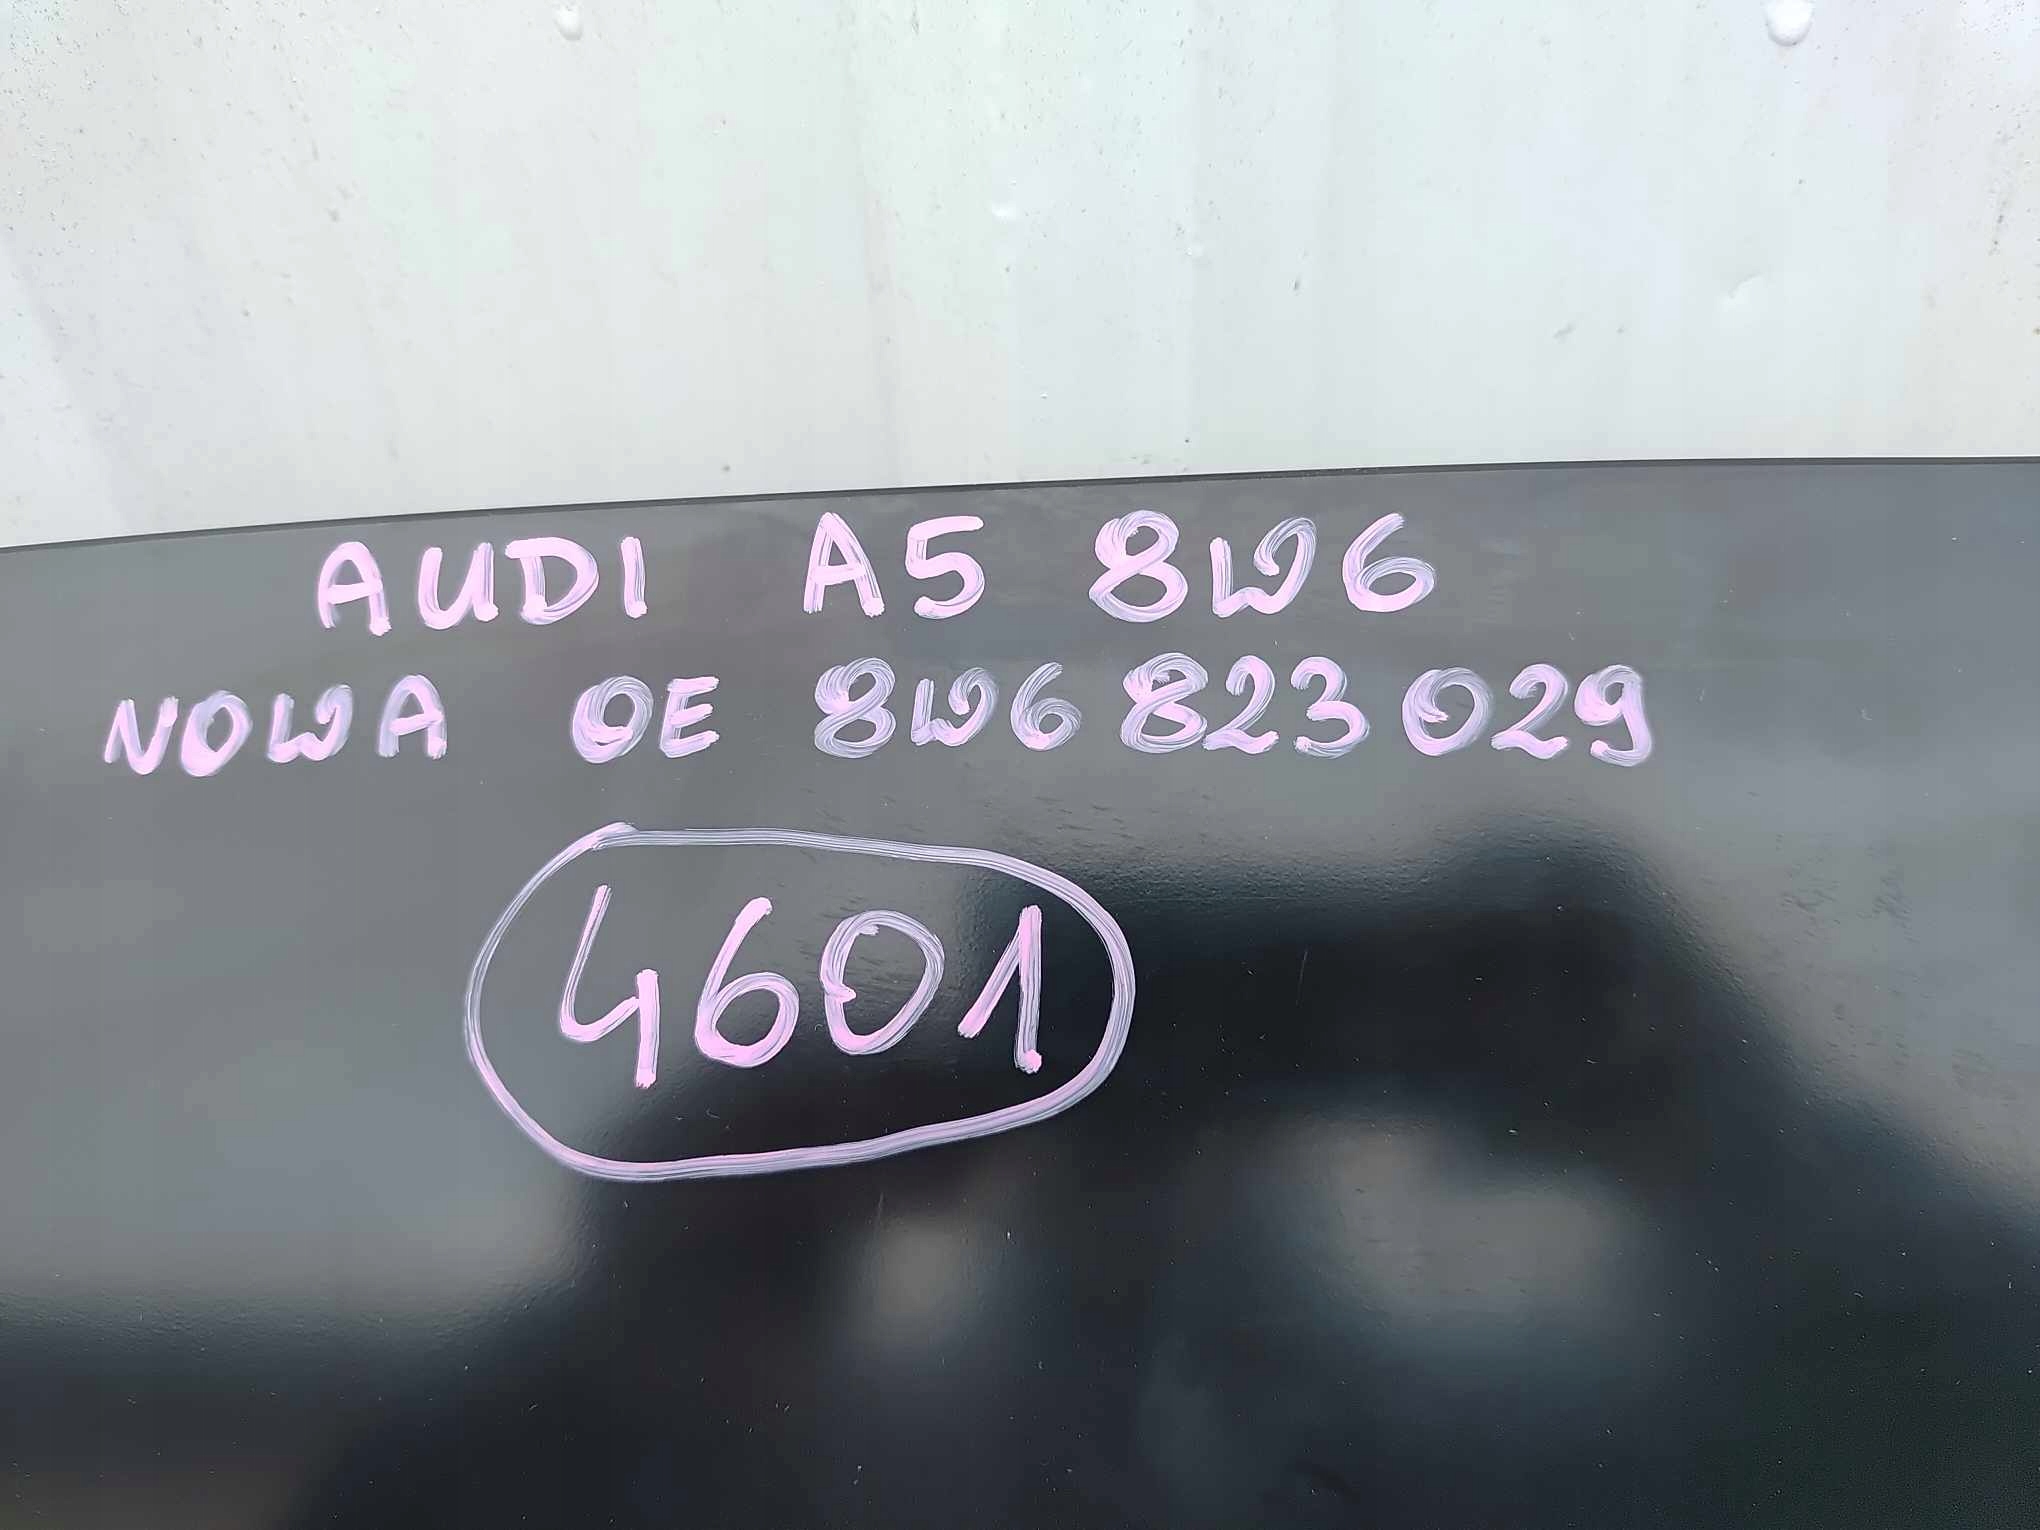 AUDI A5 8W6
NOWA OE 8W6 823 029
4601